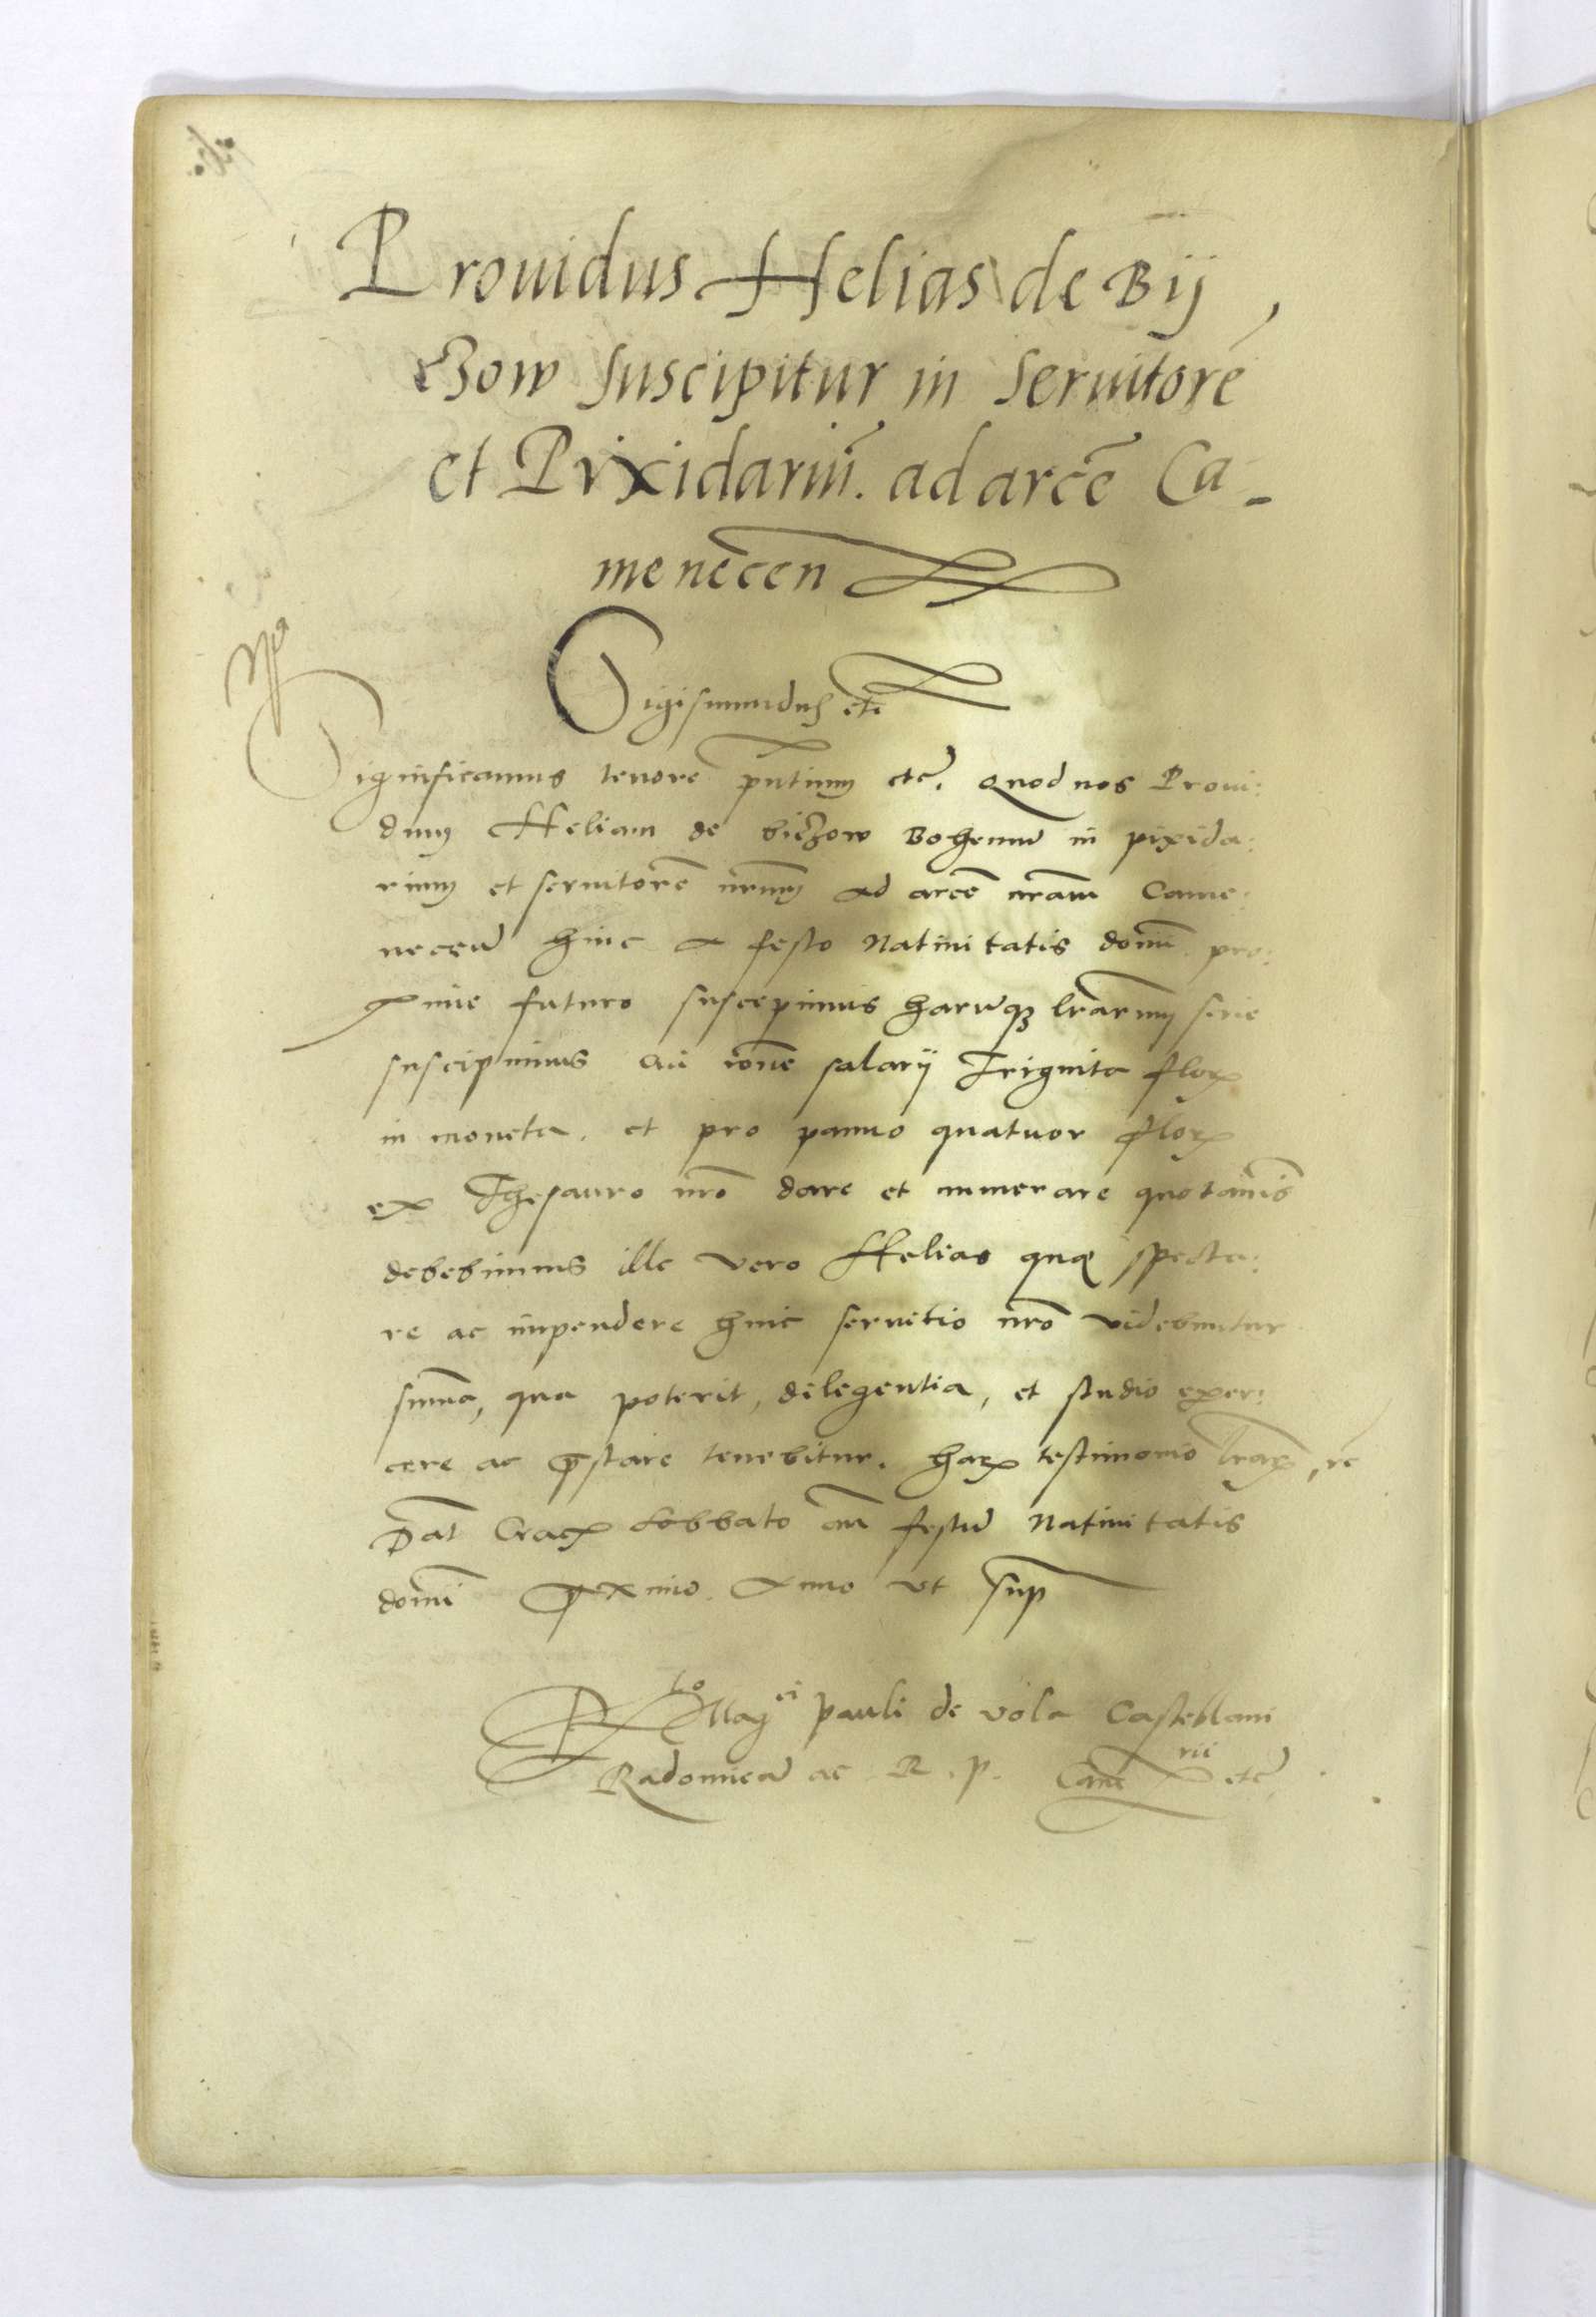 Prouidus Helias de Bij
czow suscipitur in seruitorē
et Pixidariū. ad arcē Ca-
menēcen
Sigismundus etc
Significamus tenore pn̄tium etc. Quod nos Proui:
dum Heliam de biczow Bohemū in pixida:
rium et seruitorē nr̄um ad arcē nr̄am Came:
necen̄ hinc a festo Natiuitatis domī pro:
xime futuro suscepimus harūqꝫ lr̄arum serie
suscipimus cui rōne salarij Triginta floꝝ
in moneta. et pro panno quatuor floꝝ
ex Thesauro nr̄o dare et numerare quotannis
debebimus ille vero Helias quę specta:
re ac impendere huic seruitio nr̄o videbuntur
sum̄a, qua poterit, deligentia, et studio exer:
cere ac p̄stare tenebitur. haꝝ testimonio lr̄aꝝ, rc
Dat̄ Cracꝫ sabbato an̄ festū Natiuitatis
domī proximo. Anno vt sup
R̄lo Magci pauli de vola Castellani
Radomien̄ ac R. p. Cancrii etc